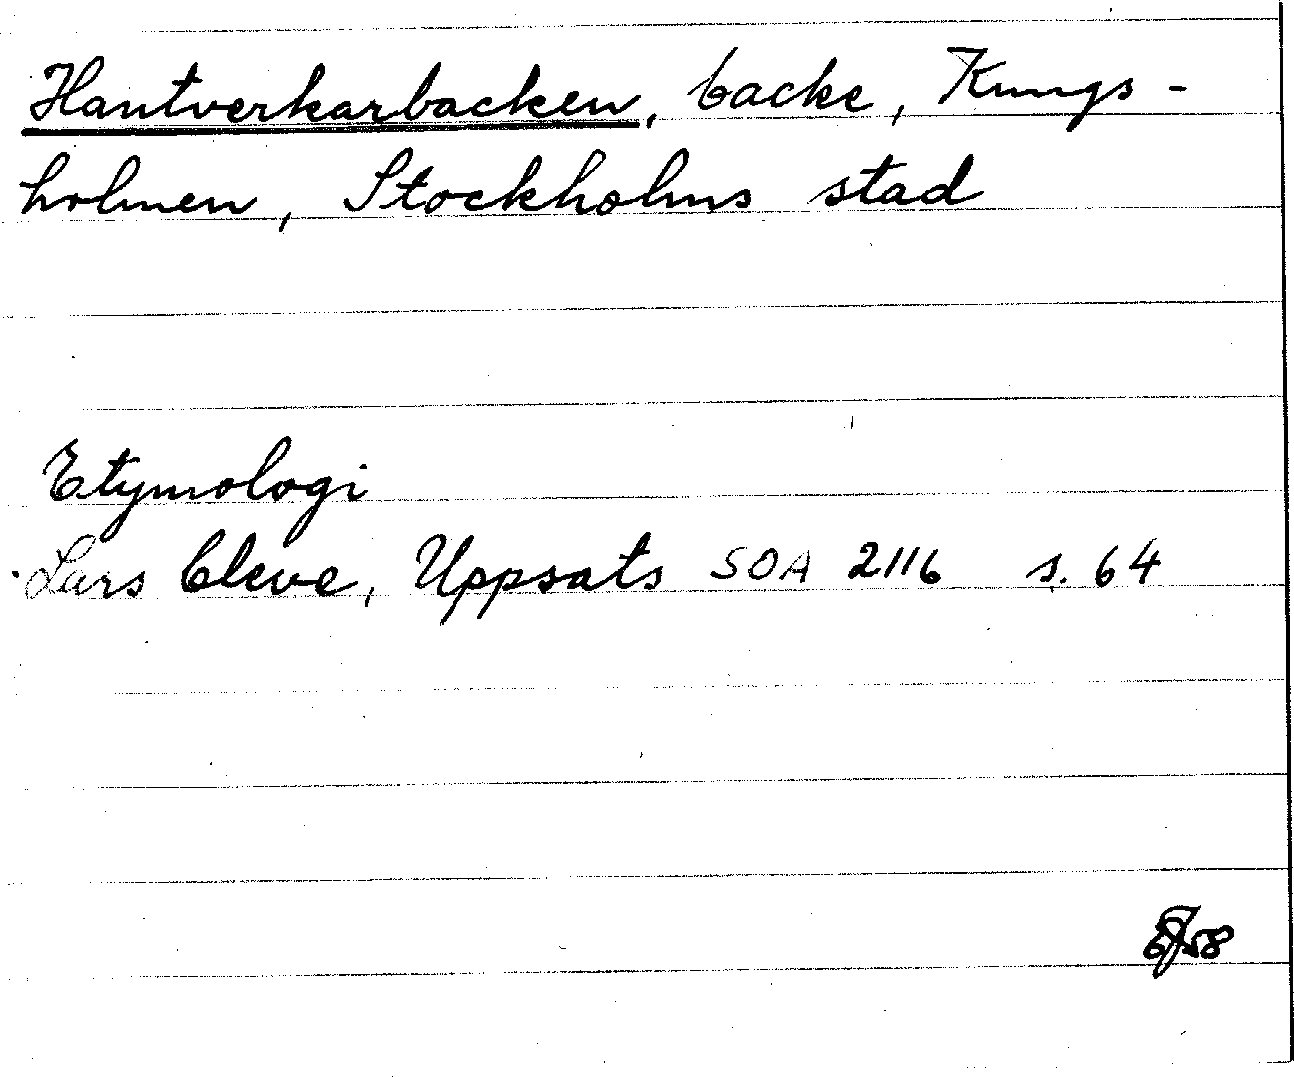 Hantverkarbacken, backe, Kungs-
holmen, Stockholms stad
Etymologi
Lars Cleve, Uppsats SOA 2116 s. 64